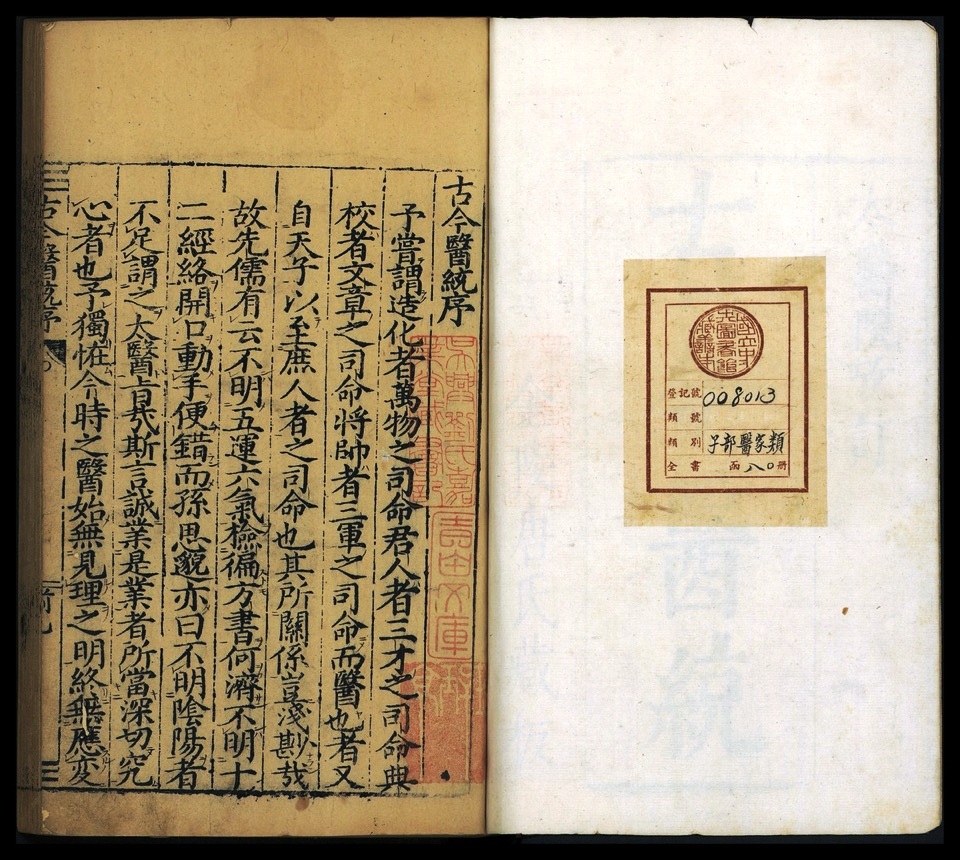 登記號 008013
類號
類別 子部醫家類
全書 函八〇册
古今醫統序
予嘗謂造化者萬物之司命君人者三才之司命典
校者文章之司命將帥者三軍之司命而醫也者又
自天子以至庶人者之司命也其所關係豈淺尠哉
故先儒有云不明五運六氣檢徧方書何濟不明十
二經絡開口動手便錯而孫思邈亦曰不明陰陽者
不足謂之太醫旨㢤斯言誠業是業者所當深切究
心者也予獨恠今時之醫始無見理之明終無應変
古今醫統序
吳興劉氏嘉業堂藏書記
吉田文庫